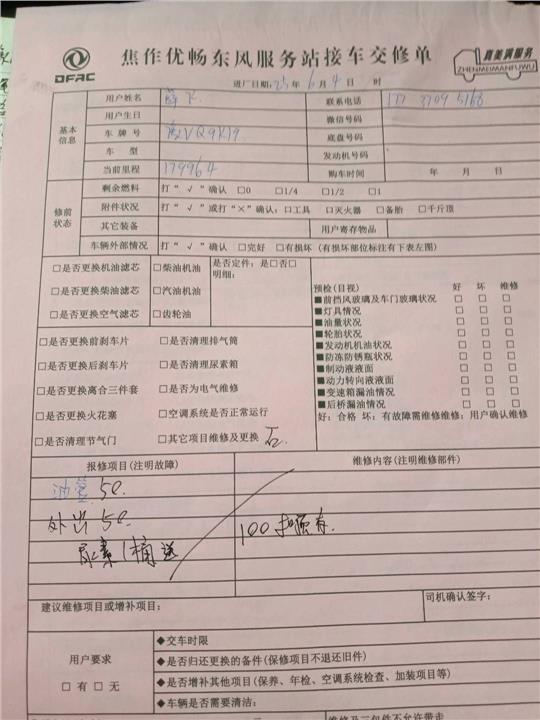 DFAC
焦作优畅东风服务站接车交修单
真美满服务
ZHENMEIMANFUWU
进厂日期: 25 年 6 月 4 日 时
基本信息
用户姓名 联系电话
用户生日 微信号码
车牌号 VQ9K19 底盘号码
车型 发动机号码
当前里程 179964 购车时间 年 月 日
修前状态
剩余燃料 打“√”确认 □0 □1/4 □1/2 □1
附件状况 打“√”或打“×”确认: □工具 □灭火器 □备胎 □千斤顶
其它装备 用户寄存物品
车辆外部情况 打“√”确认 □完好 □有损坏 (有损坏部位标注有下表左图)
□是否更换机油滤芯 □柴油机油 是否定件: 是□否□
明细:
□是否更换柴油滤芯 □汽油机油
□是否更换空气滤芯 □齿轮油
□是否更换前刹车片 □是否清理排气筒
□是否更换后刹车片 □是否清理尿素箱
□是否更换离合三件套 □是否为电气维修
□是否更换火花塞 □空调系统是否正常运行
□是否清理节气门 □其它项目维修及更换
预检(目视) 好 坏 维修
■前挡风玻璃及车门玻璃状况 □ □ □
■灯具情况 □ □ □
■油量状况 □ □ □
■轮胎状况 □ □ □
■发动机机油状况 □ □ □
■防冻防锈瓶状况 □ □ □
■制动液液面 □ □ □
■动力转向液液面 □ □ □
■变速箱漏油情况 □ □ □
■后桥漏油情况 □ □ □
好: 合格 坏: 有故障需维修维修: 用户确认维修
报修项目(注明故障) 维修内容(注明维修部件)
油管 50.
外出 50.
尿素1桶 送
100
建议维修项目或增补项目:
司机确认签字:
用户要求
□有 □无
◆交车时限
◆是否归还更换的备件(保修项目不退还旧件)
◆是否增补其他项目(保养、年检、空调系统检查、加装项目等)
◆车辆是否需要清洁: